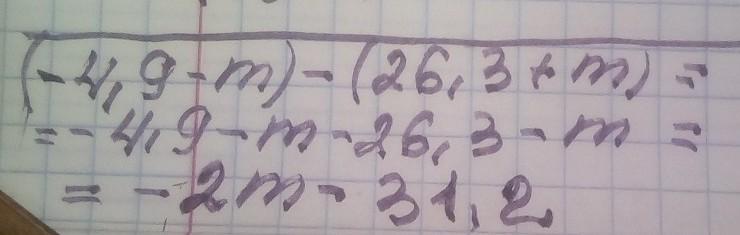 (-4,9-m)-(26,3+m)=
=-4,9-m-26,3-m=
=-2m-31,2